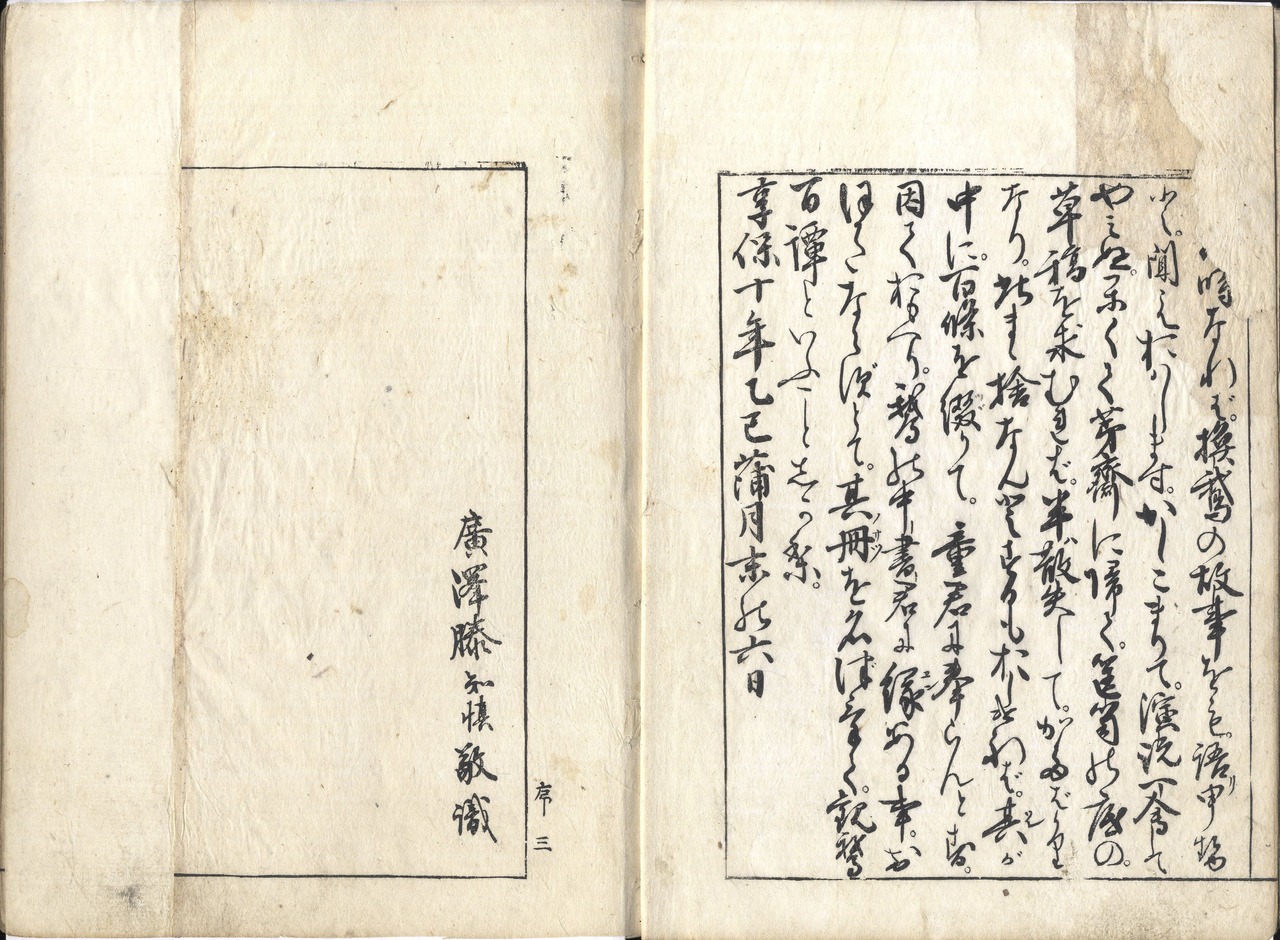 時なれば。換鵞の故事をも。語リ申
と。聞えおはします。かしこまりて。演説一奮て
やみぬ。早くく茅齋に帰て。筐笥の底の。
草稿を求むれば。半ば散失して。かたばかり
なり。此まま捨なんとするもおしければ。其が
中に。百條を綴りて。童君に奉らんとす。
因ておもへり。鵞の中書君に縁ある事。お
ほきならずとて。其冊を名づけて。観鵞
百譚といふことしかり。
享保十年乙巳蒲月末の六日
廣澤滕知慎敬識
序 三